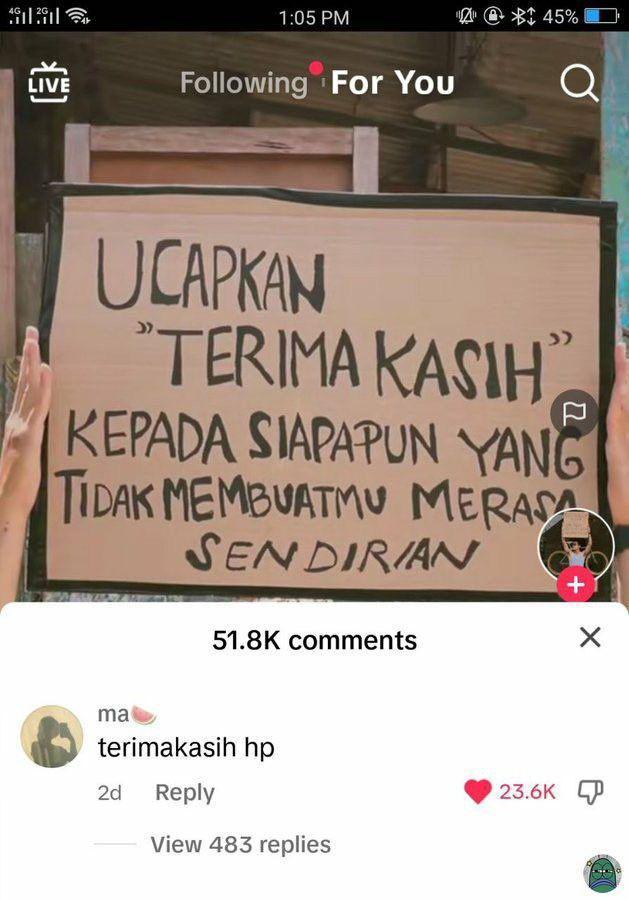 4G 2G 1:05 PM 45%
LIVE Following For You
UCAPKAN
"TERIMA KASIH"
KEPADA SIAPAPUN YANG
TIDAK MEMBUATMU MERASA
SENDIRIAN
51.8K comments
ma
terimakasih hp
2d Reply 23.6K
View 483 replies